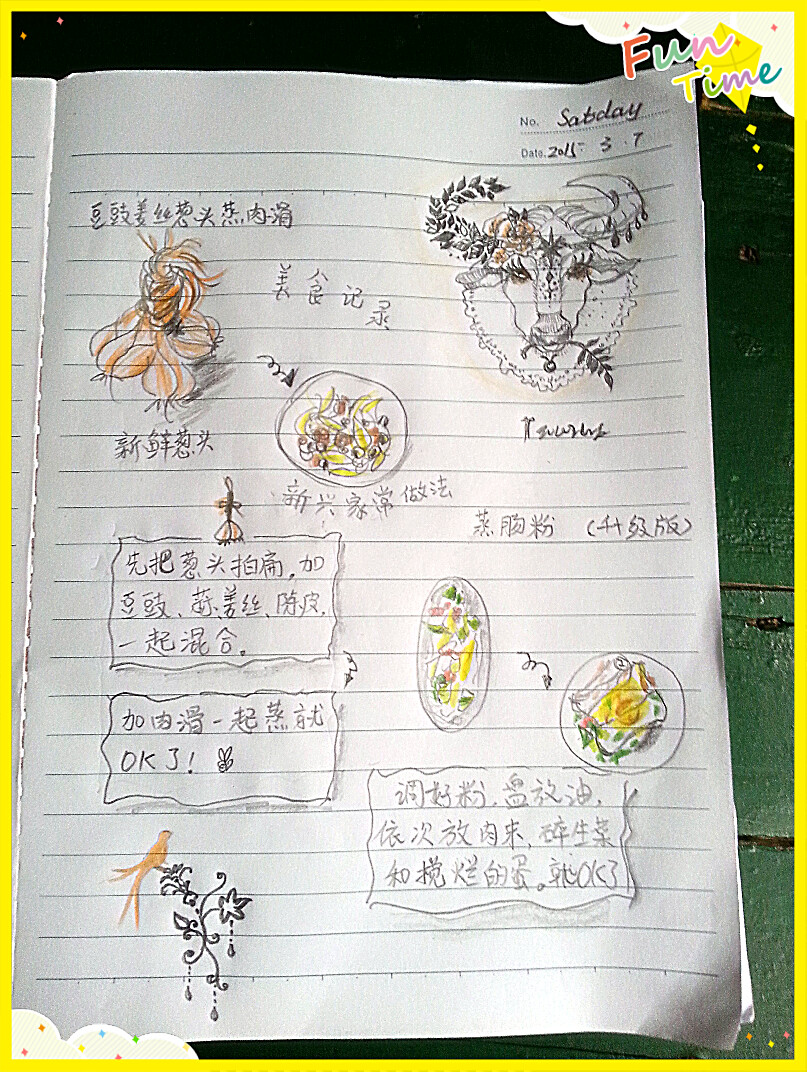 Fun
Time
No. Satsday
Date. 2015. 3. 7
豆豉姜丝葱头蒸肉滑
美食记录
新鲜葱头
新兴家常做法
Taurus
蒸肠粉（升级版）
先把葱头拍扁，加
豆豉、姜丝、陈皮，
一起混合。
加肉滑一起蒸就
OK了！
调好粉，盘放油，
依次放肉末，碎生菜
和搅烂的蛋。就OK了